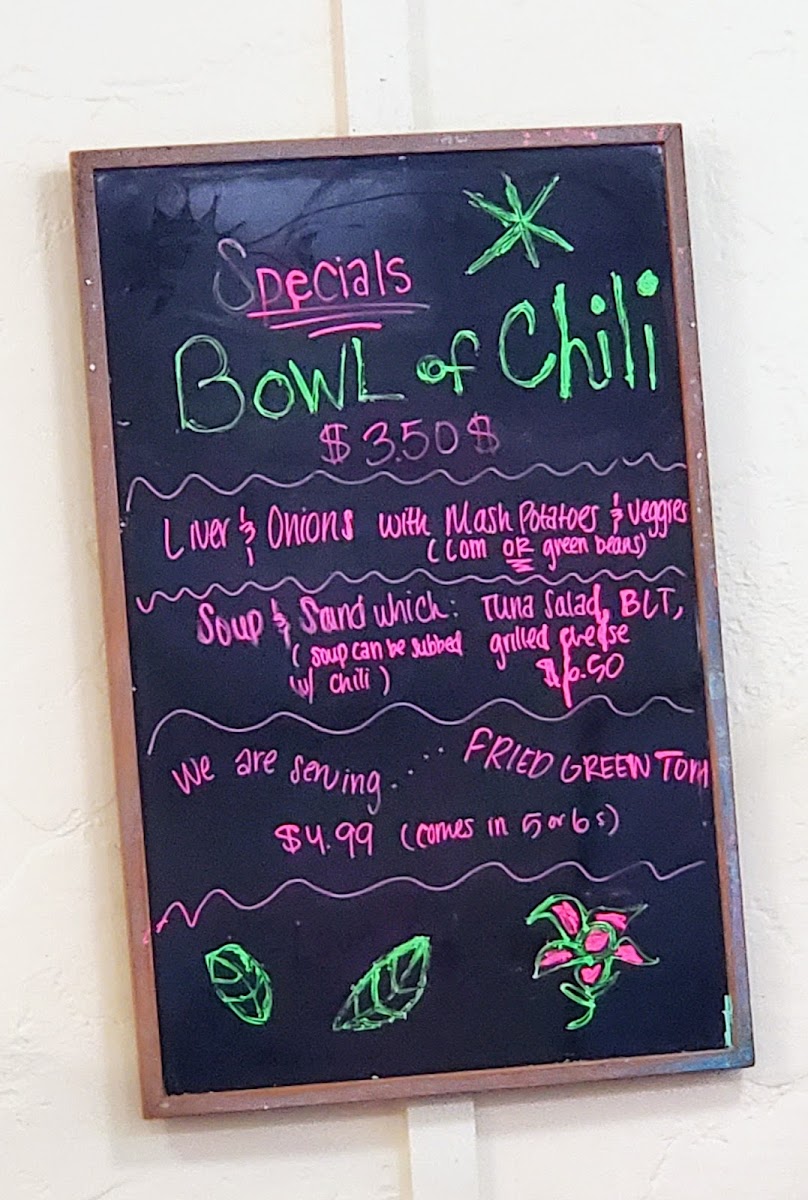 Specials
BOWL of Chili
$3.50$
Liver & Onions with Mash Potatoes & Veggies
(Corn OR green beans)
Soup & Sandwhich: Tuna Salad, BLT,
( soup can be subbed grilled cheese
w/ chili ) $6.50
We are serving..... FRIED GREEN TOM
$4.99 (comes in 5 or 6s)